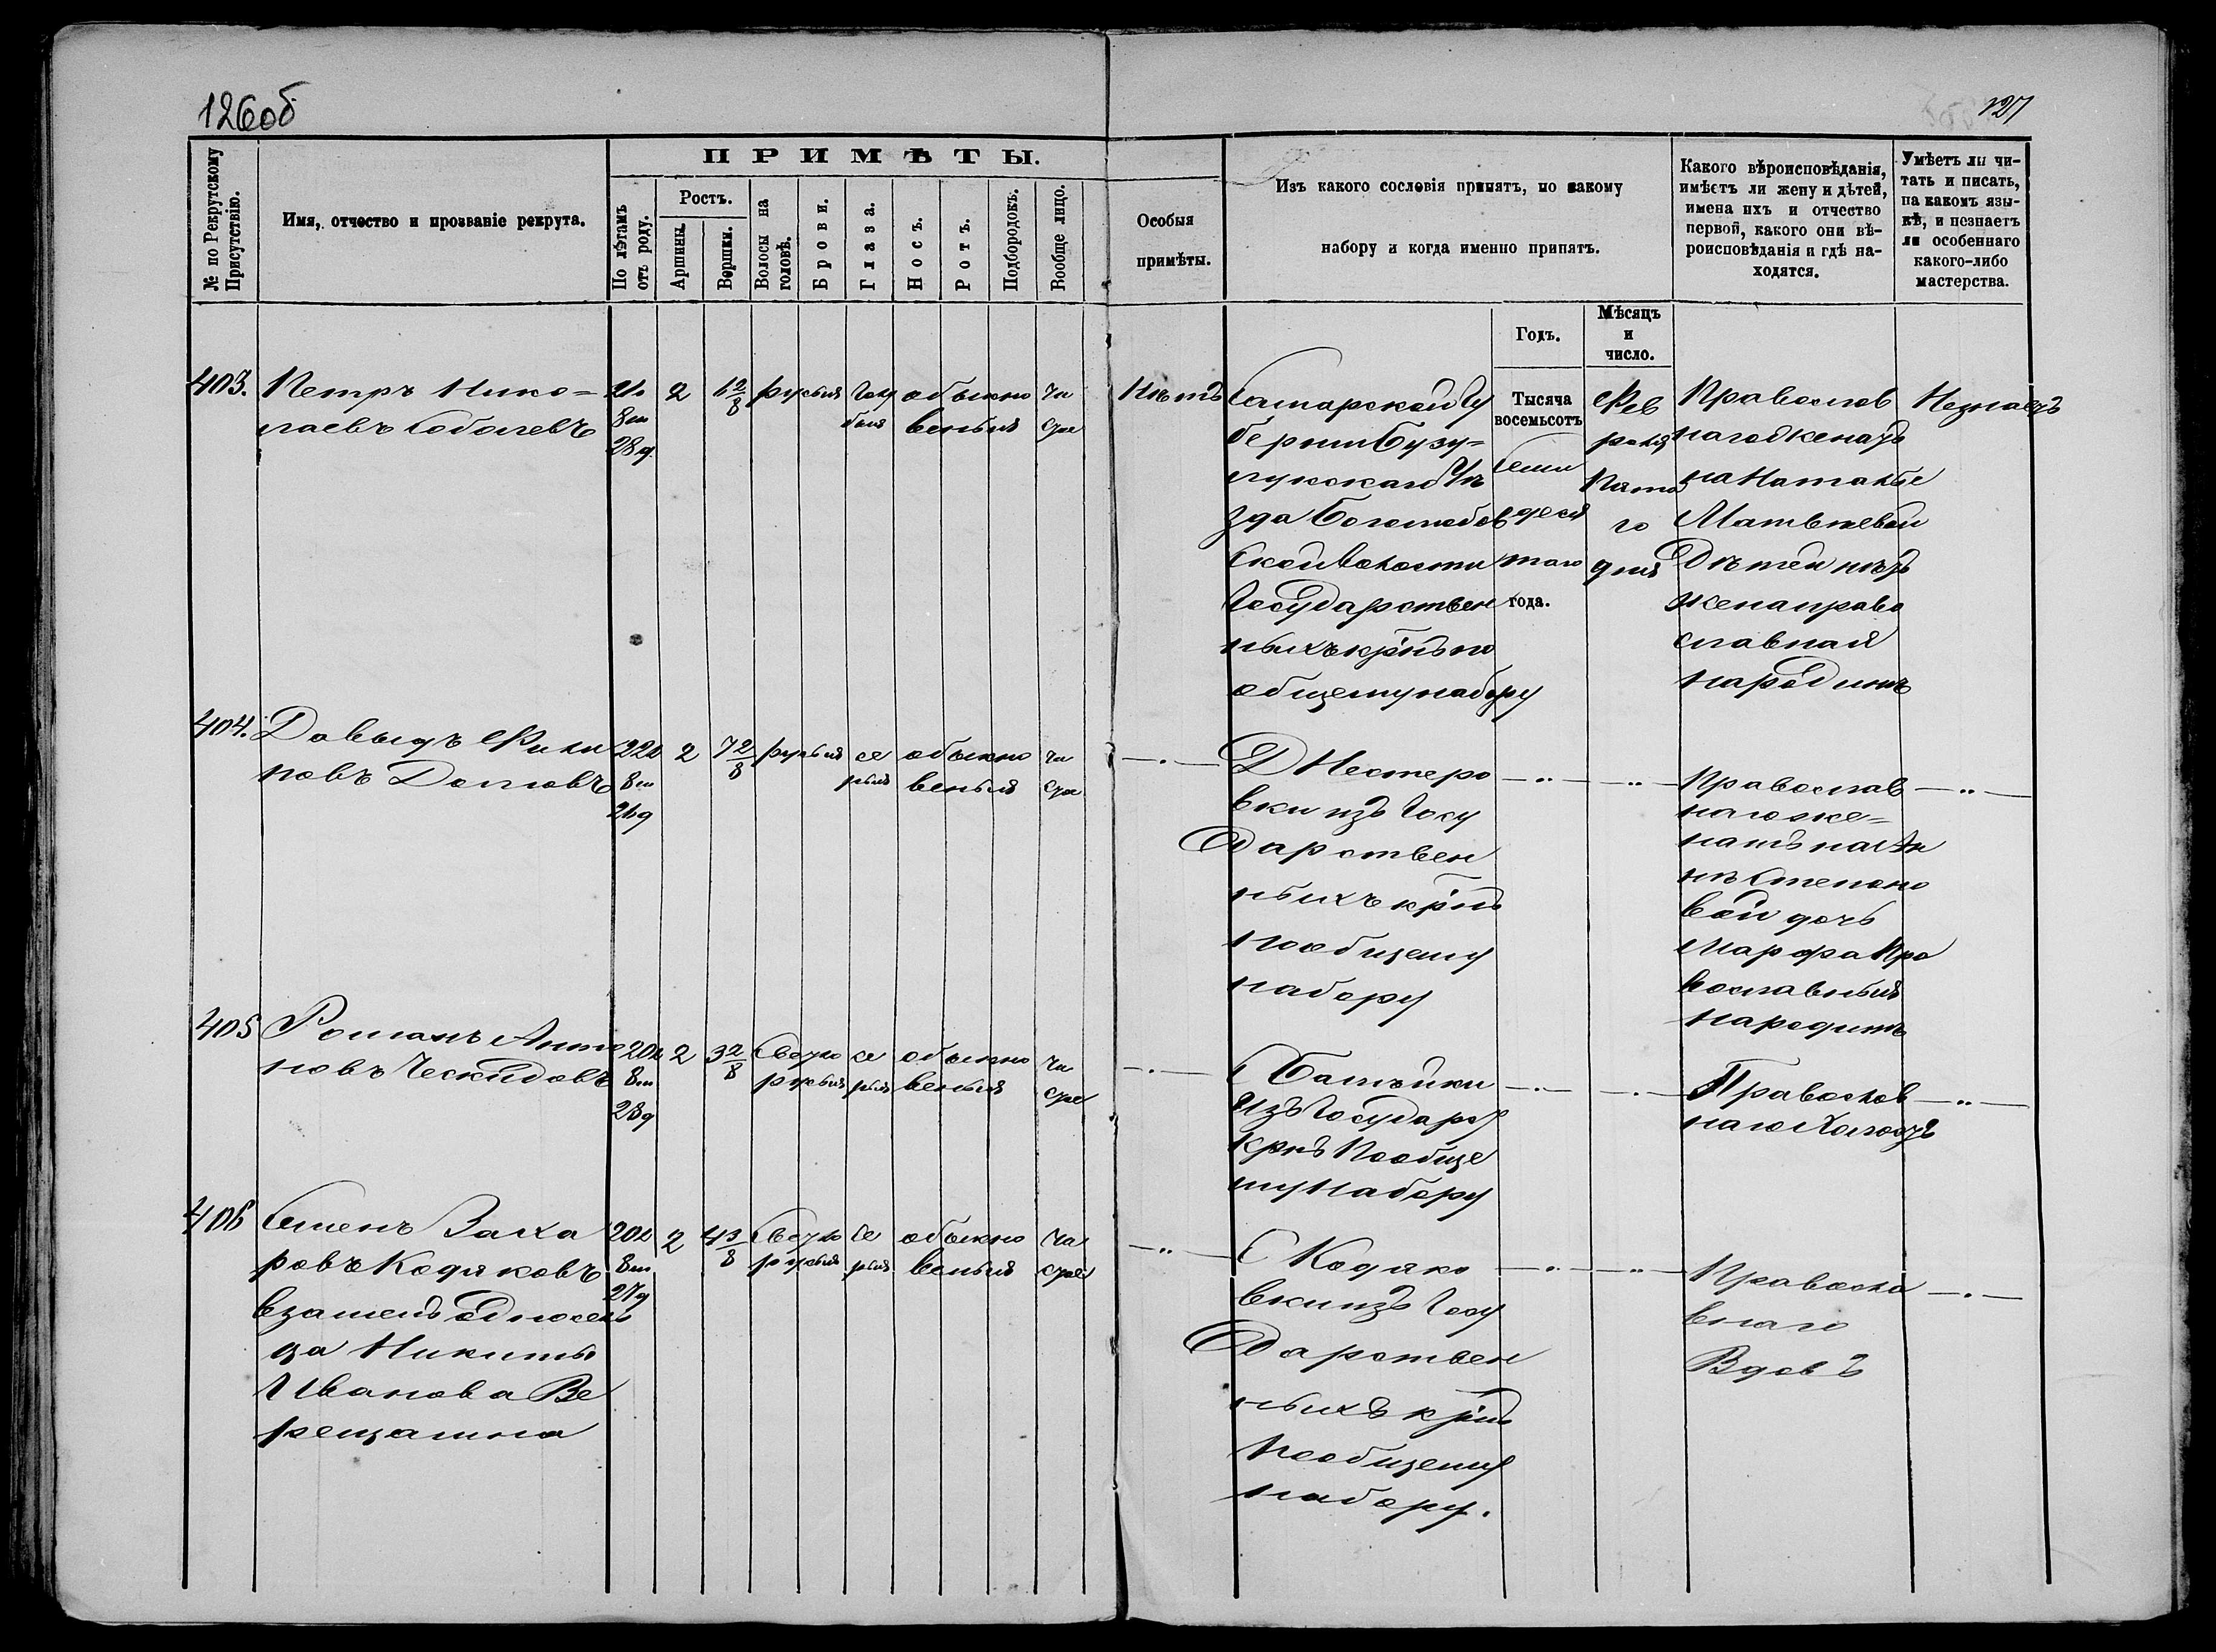 126об
127
№ по Рекрутскому Присутствію.
Имя, отчество и прозваніе рекрута.
ПРИМѢТЫ.
По лѣтамъ отъ роду.
Ростъ.
Аршины.
Вершки.
Волосы на головѣ.
Брови.
Глаза.
Носъ.
Ротъ.
Подбородокъ.
Вообще лицо.
Особыя
примѣты.
Изъ какого сословія принятъ, по какому
набору и когда именно принятъ.
Какого вѣроисповѣданія,
имѣетъ ли жену и дѣтей,
имена ихъ и отчество
первой, какого они вѣ-
роисповѣданія и гдѣ на-
ходятся.
Умѣетъ ли чи-
тать и писать,
на какомъ язы-
кѣ, и незнаетъ
ли особеннаго
какого-либо
мастерства.
Годъ.
Мѣсяцъ
и
число.
403.
Петръ Нико=
лаевъ Соболевъ
8м
28д
2
6 2/8
русыя
голу
быя
обыкно
веныя
чи
сое
Нѣтъ
Самарской Гу
берніи Бузу=
лукскаго Уѣ
зда
ской Волости
Государствен
ныхъ крнъ по
общему набору
Тысяча
восемьсотъ
семи
деся
таго
года.
Фев
раля
Пято
го
дня
Православ
наго женатъ
на Наталье
Матвеевой
Дѣтей нѣтъ
жена право
славная
на родинѣ
Незнаетъ
404.
Давыдъ Фили
повъ Долговъ
22л
8м
2
7 2/8
русыя
се
рыя
обыкно
веныя
чи
сое
Д Нестеро
вки изъ Госу
дарствен
ныхъ крнъ
по общему
набору
Православ
наго же=
натъ на Ан
нѣ Степано
вой дочь
Марфа Пра
вославныя
на родинѣ
405
Романъ Анто
новъ Ческидовъ
20л
8м
28д
2
3 2/8
Светло
русыя
се
рыя
обыкно
веныя
чи
сое
С
Изъ Государ
крнъ По обще
му Набору
Православ
наго Холостъ
406
Семенъ Заха
ровъ Кодяковъ
взаменъ односель
ца Никиты
Иванова Ве
рещагина
20л
8м
27д
2
4 3/8
Светло
русыя
Се
рыя
обыкно
веныя
чи
сое
С Кодяко
вки изъ Госу
дарствен
ныхъ крнъ
По общему
набору.
Правосла
внаго
Вдовъ